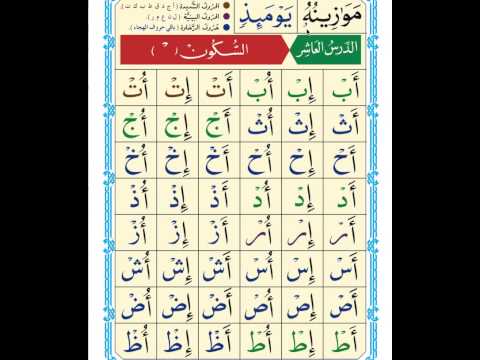 مَوَزِينُهُۥ يَوْمَئِذٍ
الحُرُوفُ الشَّدِيدَة (أ ج د ق ط ب ك ت)
الحُرُوفُ البَيْنِيَّة (ل ن ع م ر)
حُرُوفُ الرَّخَاوَة (باقي حروف الهجاء)
الدَّرسُ العَاشِر السُّكُون ( ْ )
أَبْ إِبْ أُبْ أَتْ إِتْ أُتْ
أَثْ إِثْ أُثْ أَجْ إِجْ أُجْ
أَحْ إِحْ أُحْ أَخْ إِخْ أُخْ
أَدْ إِدْ أُدْ أَذْ إِذْ أُذْ
أَرْ إِرْ أُرْ أَزْ إِزْ أُزْ
أَسْ إِسْ أُسْ أَشْ إِشْ أُشْ
أَصْ إِصْ أُصْ أَضْ إِضْ أُضْ
أَطْ إِطْ أُطْ أَظْ إِظْ أُظْ